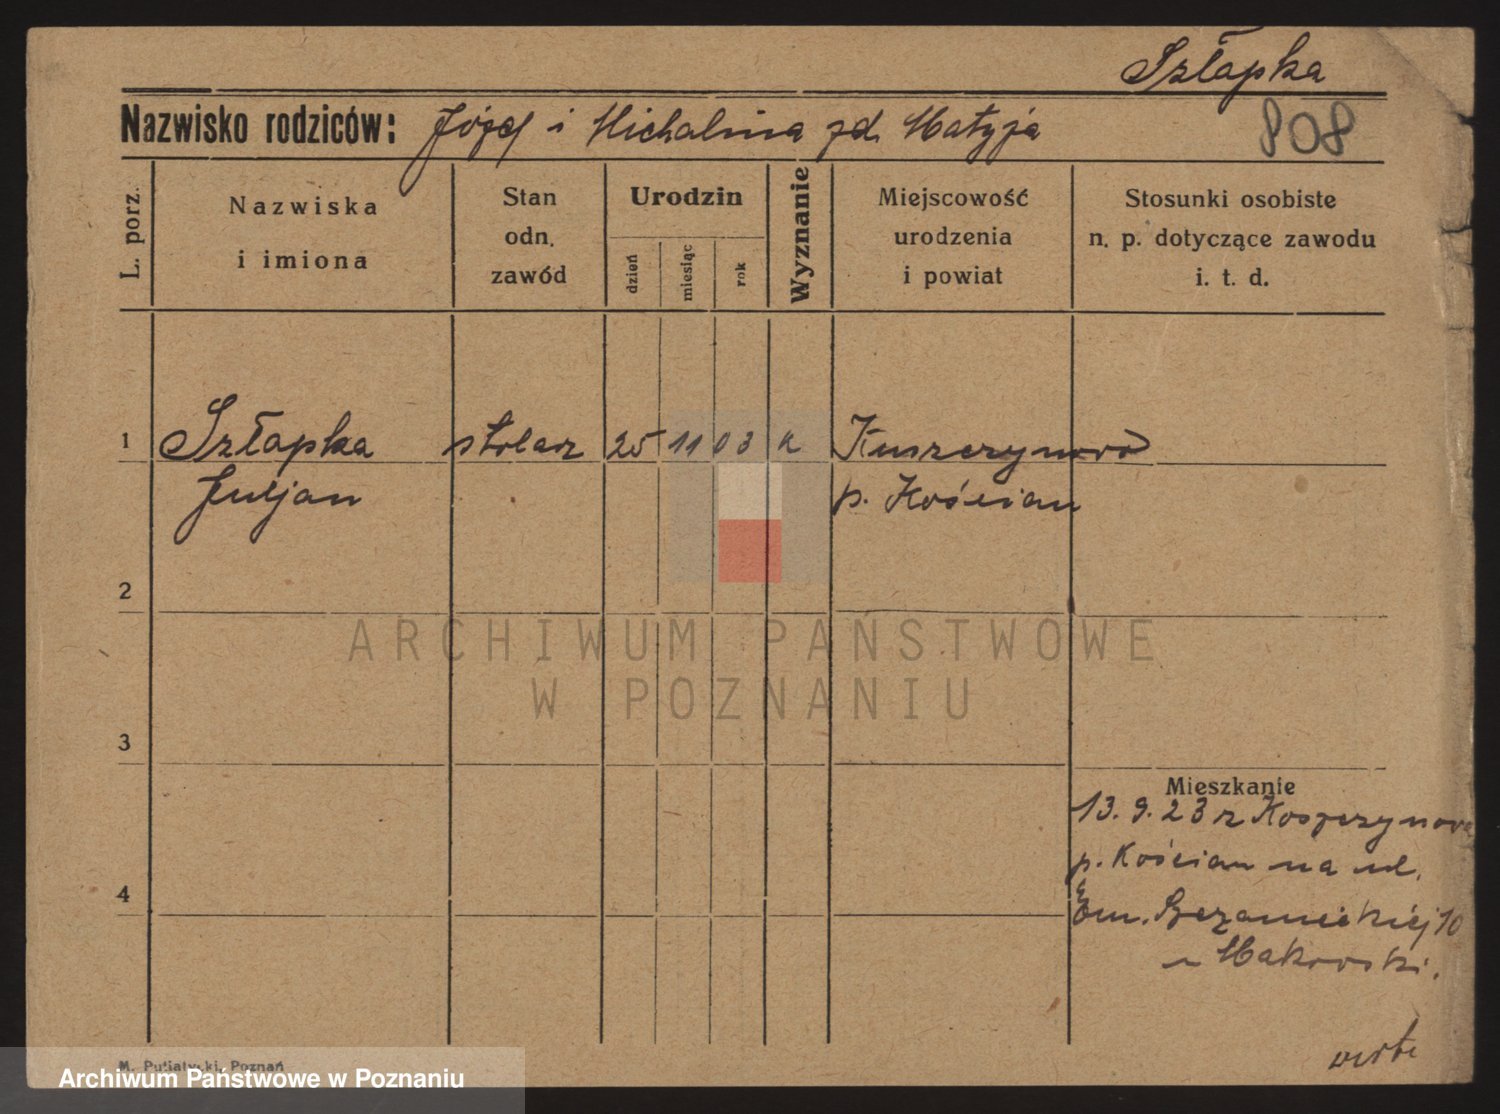 Szłapka
Nazwisko rodziców: Józef i Michalina zd. Matyja
808
L. porz.
Nazwiska
i imiona
Stan
odn.
zawód
Urodzin
dzień
miesiąc
rok
Wyznanie
Miejscowość
urodzenia
i powiat
Stosunki osobiste
n. p. dotyczące zawodu
i. t. d.
1 Szłapka stolarz 25 11 03 k
Juljan p. Kościan
2
3
4
Mieszkanie
13. 9. 23 z
p. Kościan na ul.
Em. Sczanieckiej 10
u Makowski.
verte
M. Putiatycki, Poznań
ARCHIWUM PAŃSTWOWE
W POZNANIU
Archiwum Państwowe w Poznaniu